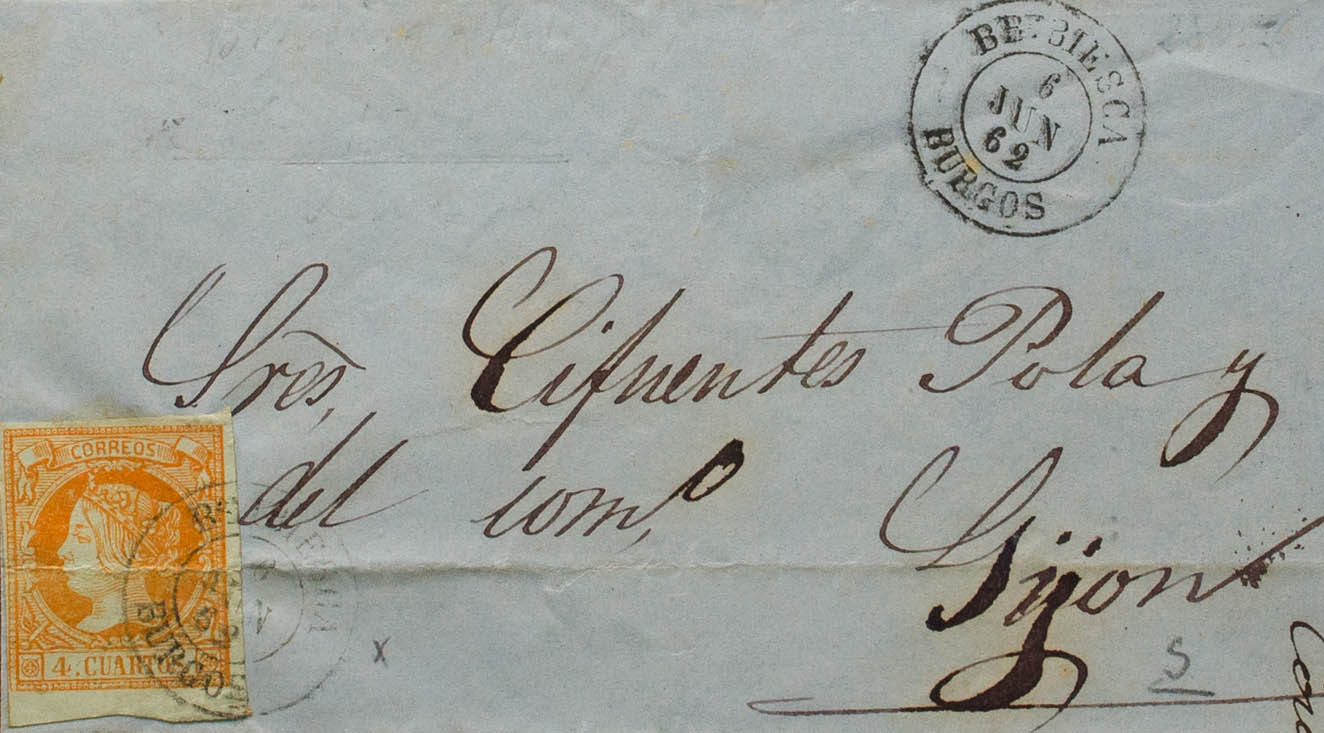 BRIBIESCA
6
JUN
62
BURGOS
Srēs, Cifuentes Pola y
del comº,
Gijon
CORREOS
4. CUARTOS
BURGOS
x
S